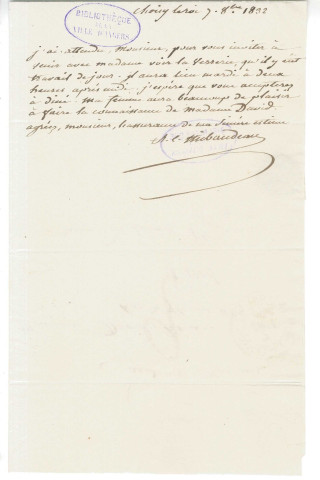 choisy le roi 7. 8bre 1832
BIBLIOTHÈQUE
DE LA
VILLE D'ANGERS
j'ai attendu, monsieur, pour vous inviter à
venir avec madame voir la verrerie, qu'il y eut
travail de jour. il aura lieu mardi à deux
heures après midi. j'espère que vous accepterez
à diné. ma femme aura beaucoup de plaisir
à faire la connaissance de madame David.
agréez, monsieur, l'assurance de ma sincère estime
A. C. Thibaudeau